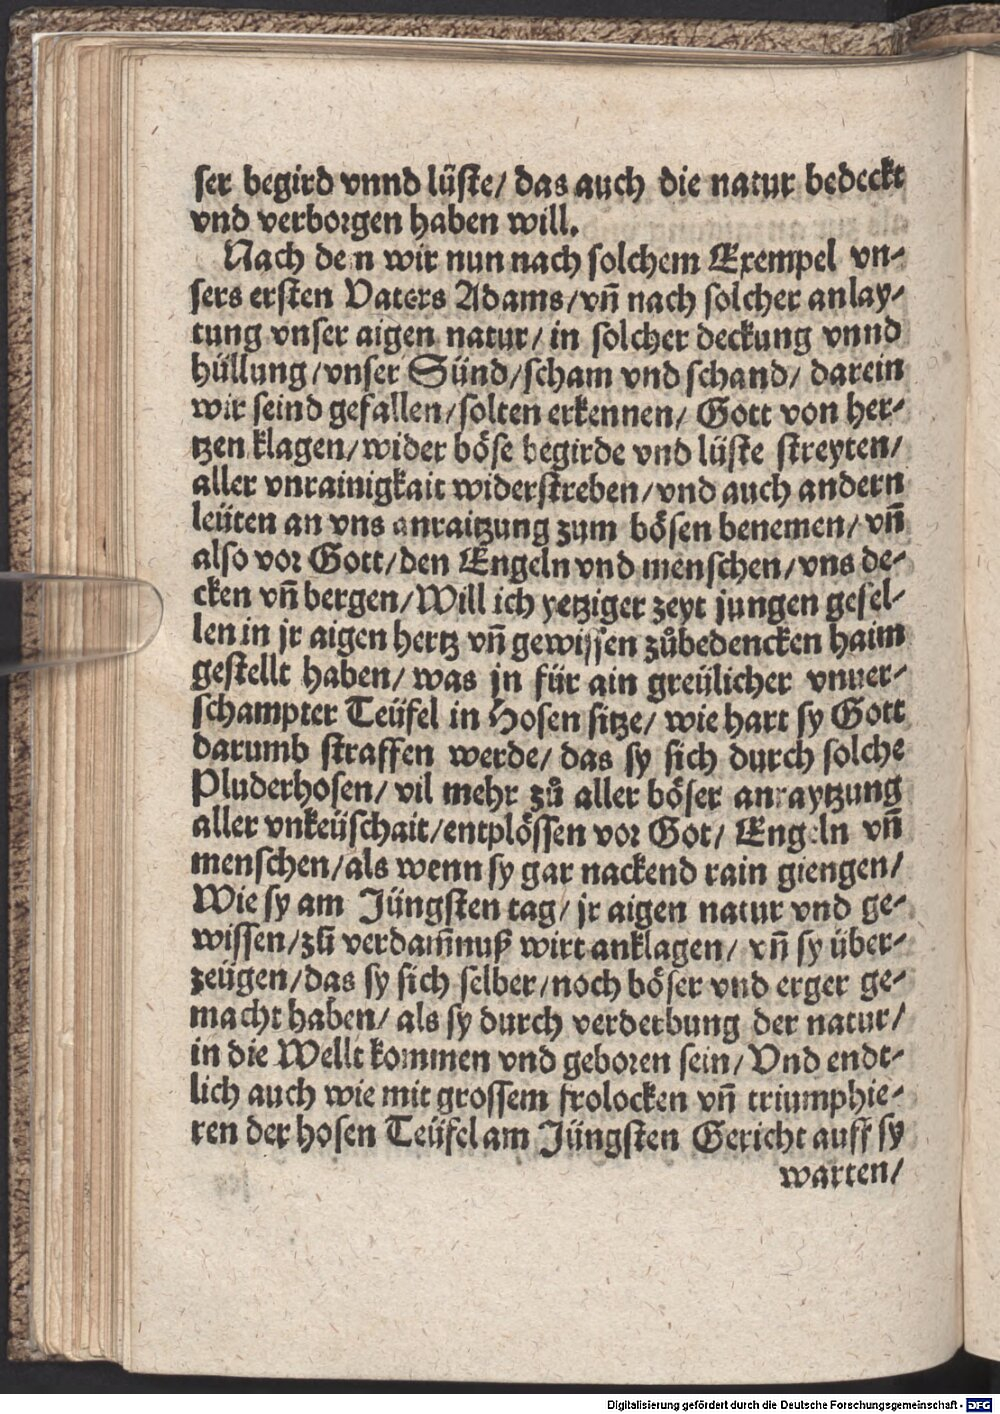 ser begird vnnd lüste/ das auch die natur bedeckt
vnd verborgen haben will.
Nach dem wir nun nach solchem Exempel vn-
sers ersten Vaters Adams/vn̄ nach solcher anlay-
tung vnser aigen natur/ in solcher deckung vnnd
hüllung/vnser Sünd/scham vnd schand/ darein
wir seind gefallen/solten erkennen/ Gott von her-
tzen klagen/wider böse begirde vnd lüste streyten/
aller vnrainigkait widerstreben/vnd auch andern
leüten an vns anraitzung zum bösen benemen/ vn̄
also vor Gott/den Engeln vnd menschen/vns de-
cken vn̄ bergen/Will ich yetziger zeyt jungen gesel-
len in jr aigen hertz vn̄ gewissen zůbedencken haim
gestellt haben/ was jn für ain greülicher vnuer-
schampter Teüfel in Hosen sitze/ wie hart sy Gott
darumb straffen werde/ das sy sich durch solche
Pluderhosen/ vil mehr zů aller böser anraytzung
aller vnkeüschait/entplössen vor Got/ Engeln vn̄
menschen/als wenn sy gar nackend rain giengen/
Wie sy am Jüngsten tag/ jr aigen natur vnd ge-
wissen/zů verdam̄nuß wirt anklagen/ vn̄ sy über-
zeügen/das sy sich selber/noch böser vnd erger ge-
macht haben/ als sy durch verderbung der natur/
in die Wellt kommen vnd geboren sein/ Vnd endt-
lich auch wie mit grossem frolocken vn̄ triumphie-
ren der hosen Teüfel am Jüngsten Gericht auff sy
warten/
Digitalisierung gefördert durch die Deutsche Forschungsgemeinschaft - DFG